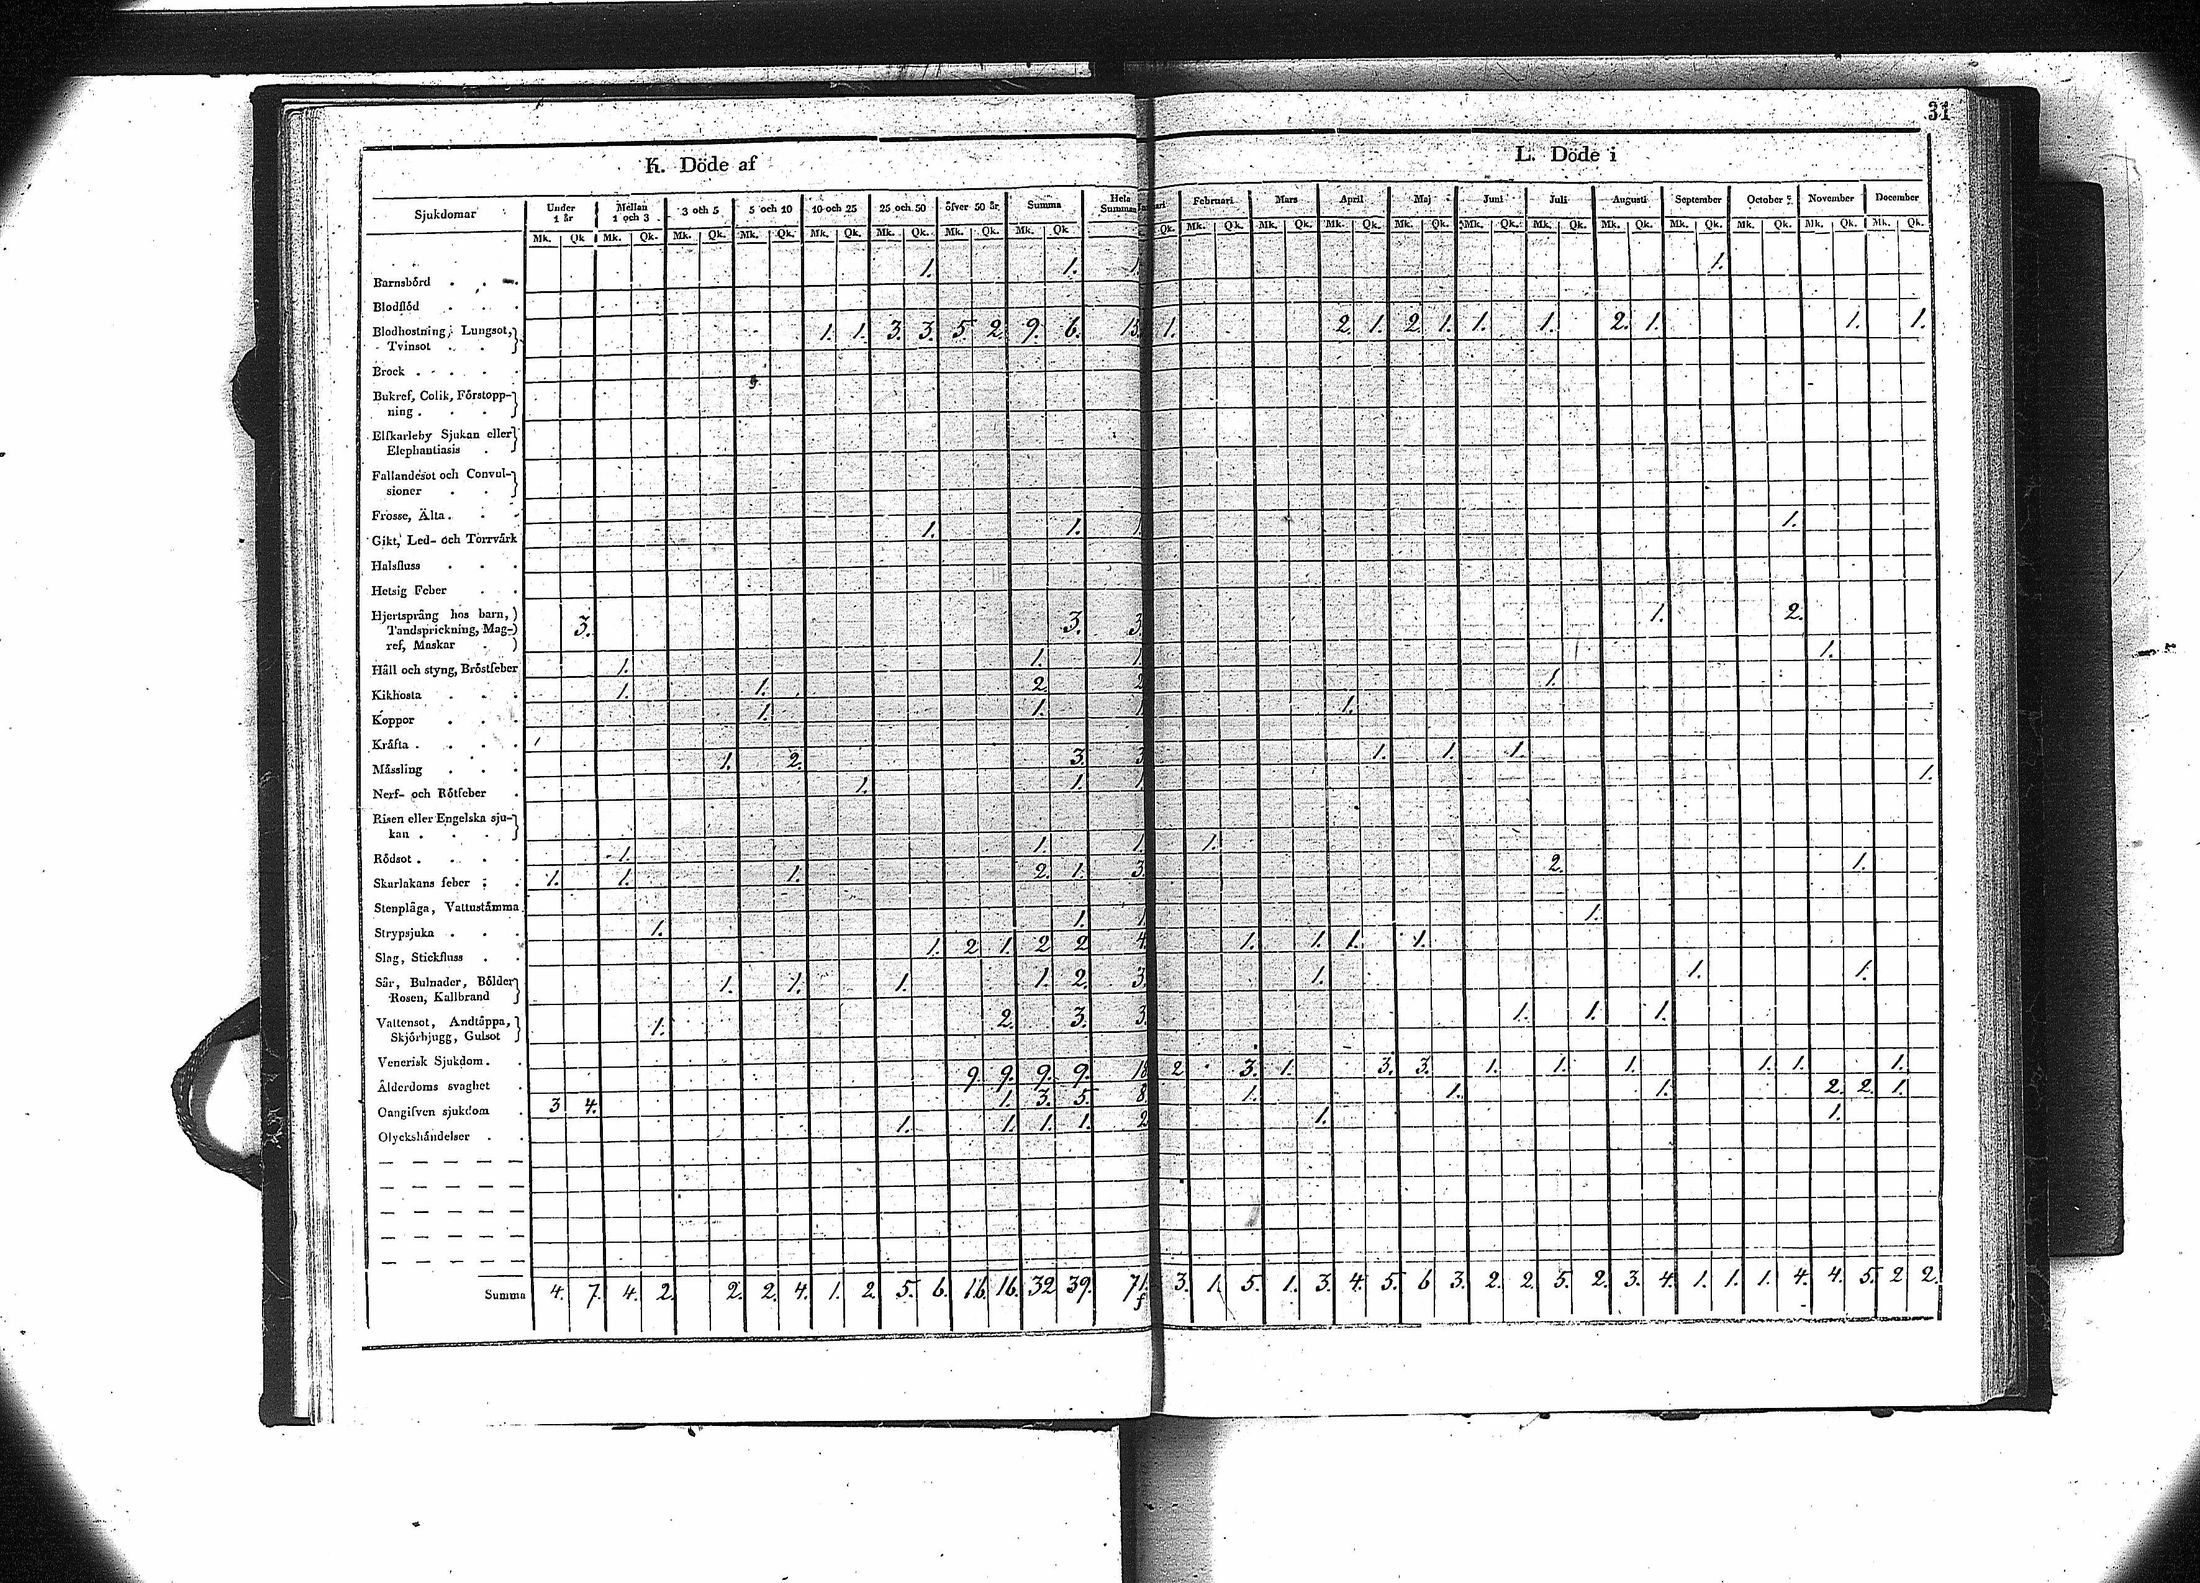 31
K. Döde af
L. Döde i
Sjukdomar Under 1 år Mellan 1 och 3 3 och 5 5 och 10 10 och 25 25 och 50 öfver 50 år. Summa Hela Summan Februari Mars April Maj Juni Juli Augusti September October November December
Mk. Qk Mk. Qk. Mk. Qk. Mk. Qk. Mk. Qk. Mk. Qk. Mk. Qk. Mk. Qk Qk. Mk. Qk. Mk. Qk. Mk. Qk. Mk. Qk. Mk. Qk. Mk. Qk. Mk. Qk. Mk. Qk. Mk. Qk. Mk. Qk. Mk. Qk.
Barnsbörd . . 1. 1. 1. 1.
Blodflöd . . .
Blodhostning, Lungsot,
Tvinsot . . 1. 1. 3. 3. 5. 2. 9. 6. 15. 1. 2. 1. 2. 1. 1. 1. 2. 1. 1. 1.
Brock . . . .
Bukref, Colik, Förstopp-
ning . . .
Elfkarleby Sjukan eller
Elephantiasis .
Fallandesot och Convul-
sioner . .
Frosse, Älta . . .
Gikt, Led- och Torrvärk 1. 1. 1. 1.
Halsfluss . . .
Hetsig Feber . .
Hjertsprång hos barn,
Tandsprickning, Mag-
ref, Maskar . 3. 3. 3. 1. 2.
Håll och styng, Bröstfeber 1. 1. 1. 1.
Kikhosta . . . 1. 1. 2. 2 1.
Koppor . . . 1. 1. 1 1.
Kräfta . . . .
Mässling . . . 1. 2. 3. 3 1. 1. 1.
Nerf- och Rötfeber . 1. 1. 1 1.
Risen eller Engelska sju-
kan . . . .
Rödsot . . . . 1. 1. 1. 1.
Skarlakans feber . . 1. 1. 1. 2. 1. 3. 2. 1.
Stenplåga, Vattustämma .
Strypsjuka . . . 1. 1. 1 1.
Slag, Stickfluss . . 1. 2 1. 2 2 4 1. 1. 1. 1.
Sår, Bulnader, Bölder
Rosen, Kallbrand 1. 1. 1. 1. 2. 3. 1. 1. 1.
Vattensot, Andtäppa,
Skjörbjugg, Gulsot 1. 2. 3. 3. 1. 1. 1.
Venerisk Sjukdom . .
Ålderdoms svaghet . 9. 9. 9. 9. 18 2 3. 1. 3. 3. 1. 1. 1. 1. 1. 1.
Oangifven sjukdom . 3 4. 1. 3. 5. 8 1. 1. 1. 2. 2. 1.
Olyckshändelser . . 1. 1. 1. 1. 2 1. 1.
Summa 4. 7. 4. 2. 2. 2. 4. 1. 2. 5. 6. 16. 16. 32 39. 71. 3. 1. 5. 1. 3. 4. 5. 6 3. 2. 2. 5. 2. 3. 4. 1. 1. 1. 4. 4. 5. 2 2.